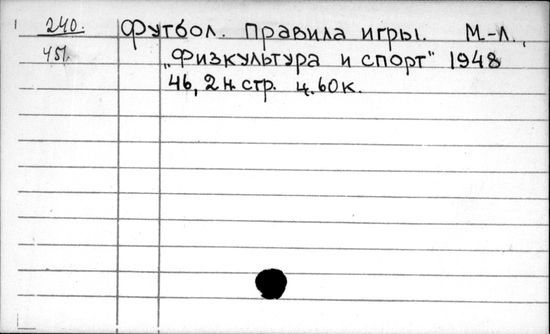 240. Футбол. Правила игры. М-Л.,
451. „Физкультура и спорт" 1948
46, 2 н. стр. ц. 60 к.